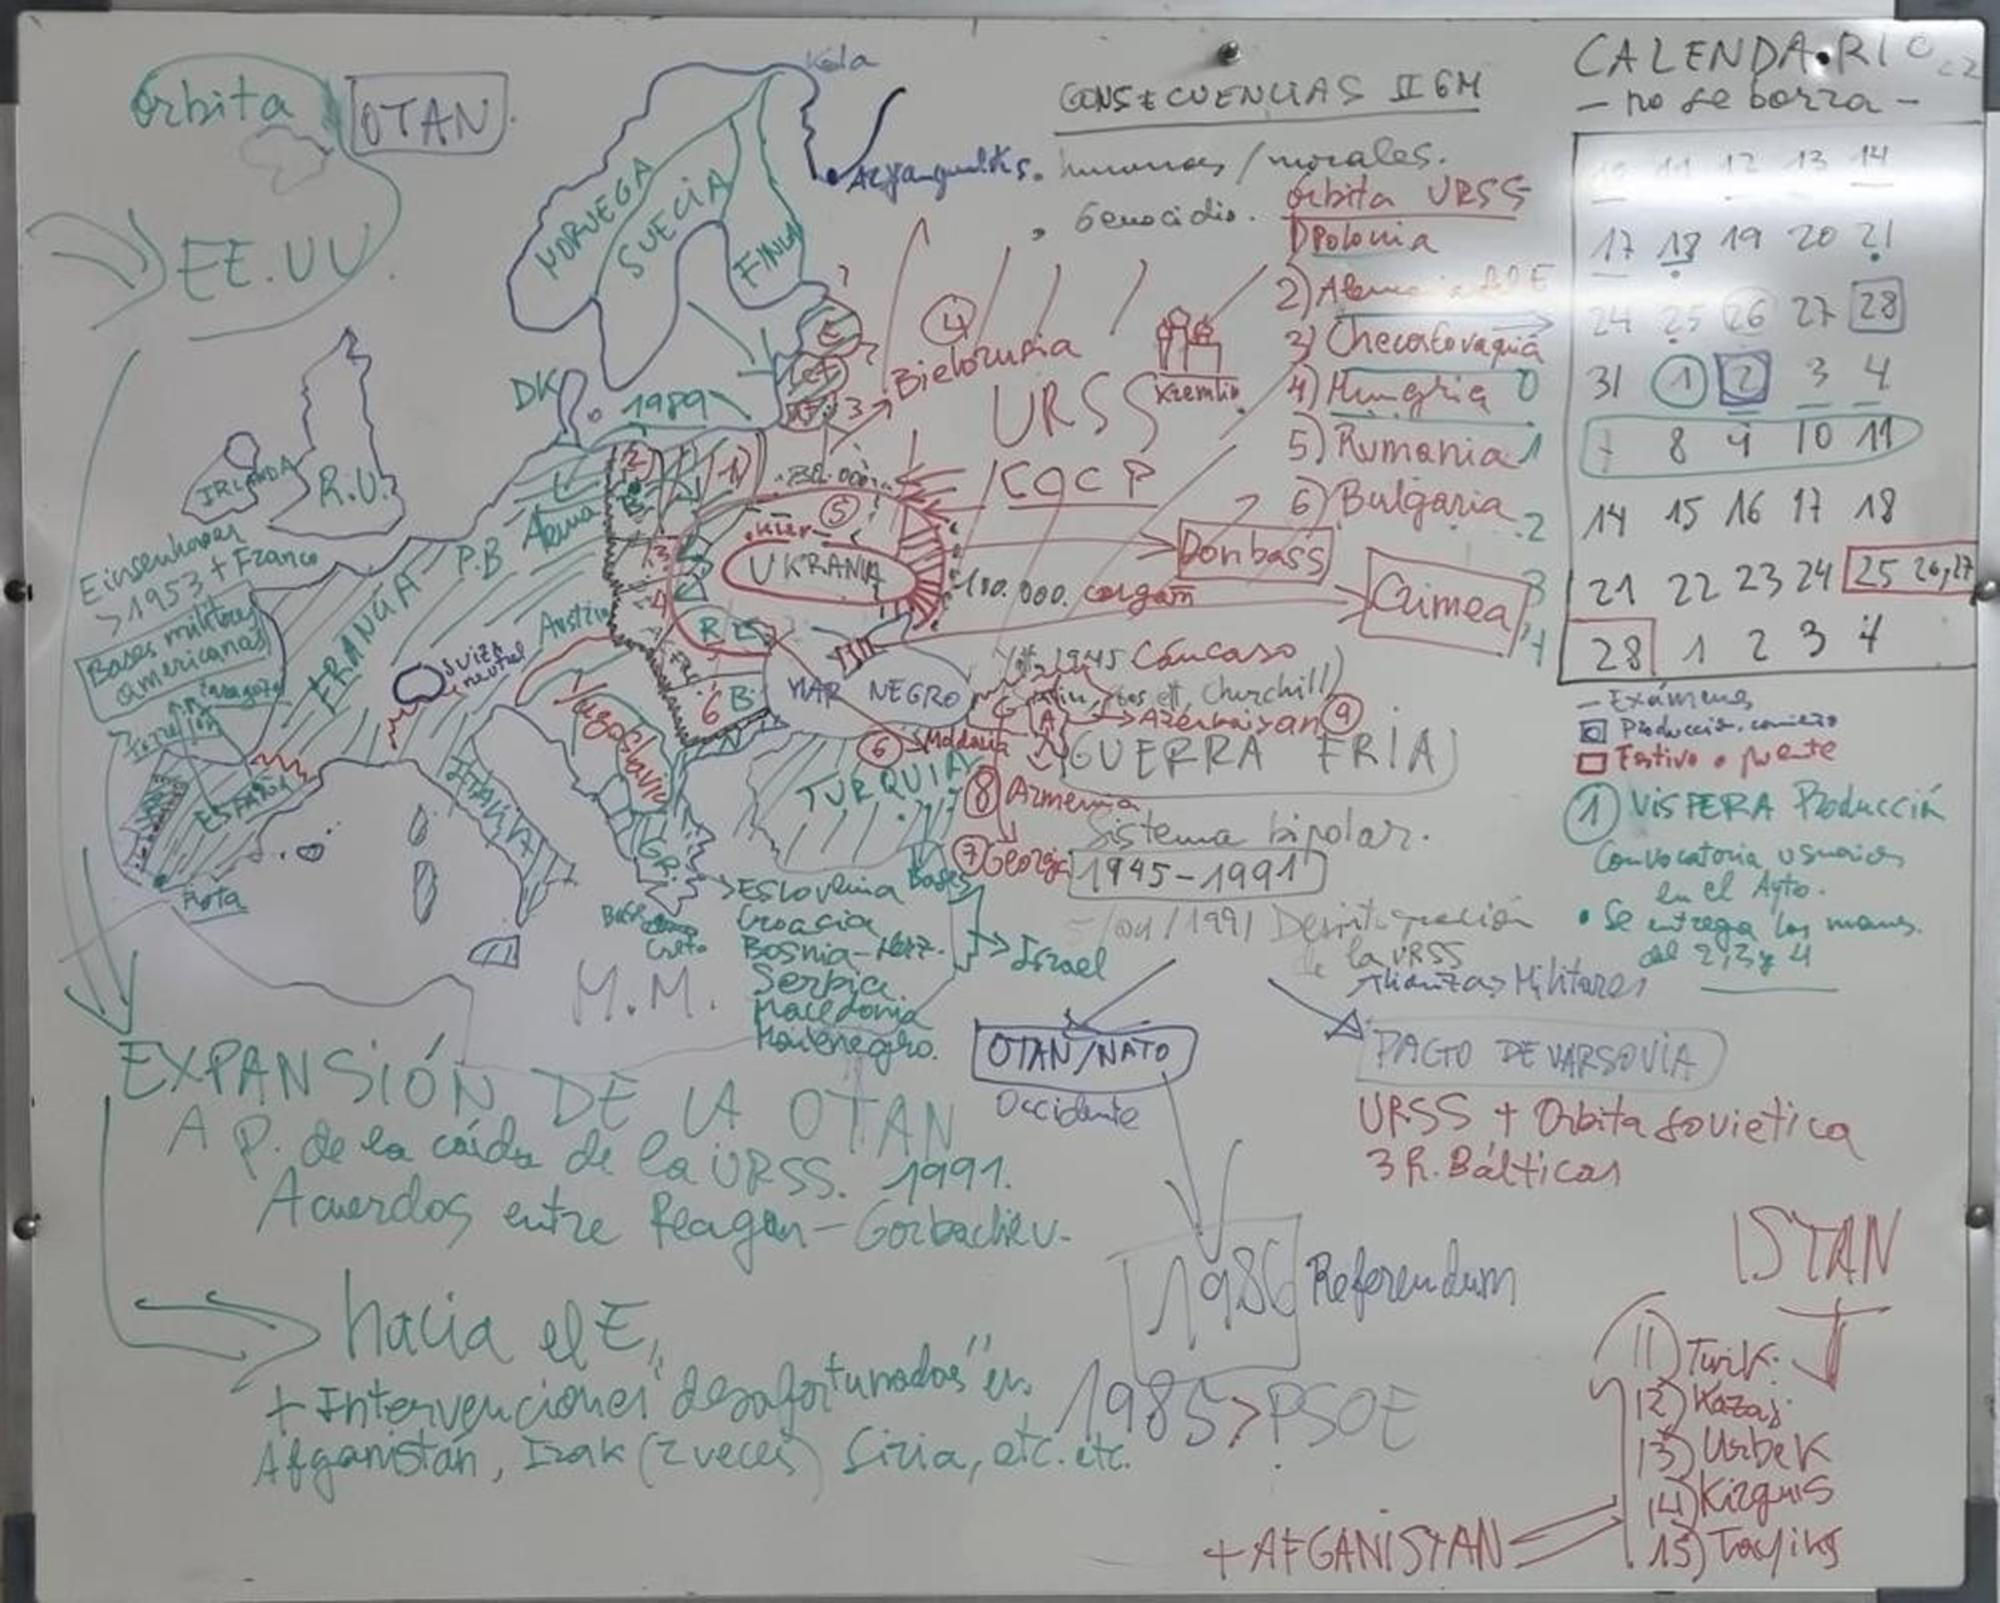 órbita OTAN
EE.UU.
Kola
NORUEGA
SUECIA
FINLA
CONSECUENCIAS II GM
humanas / morales.
Genocidio.
CALENDARIO
- no se borra -
10 11 12 13 14
17 18 19 20 21
24 25 26 27 28
31 1 2 3 4
7 8 9 10 11
14 15 16 17 18
21 22 23 24 25 26, 27
28 1 2 3 4
- Exámenes
Producción, comienzo
Festivo o puente
1 VÍSPERA Producción
Convocatoria usuarios
en el Ayto.
• Se entrega los
del 2, 3 y 4
órbita URSS
1) Polonia
2) Alemania del E
3) Checoslovaquia
4) Hungría
5) Rumania
6) Bulgaria
0
1
2
3
4
4
Bielorusia
URSS
Kremlin
CCCP
DK
1989
IRLANDA
R.U.
130.000
5
Kiev
UKRANIA
Donbass
Crimea
P.B
Alema
FRANCIA
Austria
SUIZA
neutral
Einsenhower
> 1953 + Franco
Bases militares
americanas
Zaragoza
Torrejón
ESPAÑA
Rota
ITALIA
Yugoslavia
GR.
MAR NEGRO
TURQUIA
1945 Cáucaso
Churchill)
Azerbaiyan 9
6 Moldavia
8 Armenia
7 Georgia
GUERRA FRIA
Sistema bipolar.
1945-1991
1991 Desintegración
de la URSS
Alianzas Militares
Bases
Israel
Base
Creta
Eslovenia
Croacia
Bosnia-Herz.
Serbia
Macedonia
Montenegro.
M.M.
OTAN/NATO
Occidente
PACTO DE VARSOVIA
URSS + Orbita sovietica
3 R. Bálticas
EXPANSIÓN DE LA OTAN
A P. de la caída de la URSS. 1991.
Acuerdos entre Reagan - Gorbachev.
hacia el E,
+ Intervenciones "desafortunadas" en
Afganistán, Irak (2 veces) Siria, etc. etc.
1986 Referendum
1985 > PSOE
ISTAN
11) Turk.
12) Kazaj
13) Uzbek
14) Kirguis
15) Tayiks
+ AFGANISTAN